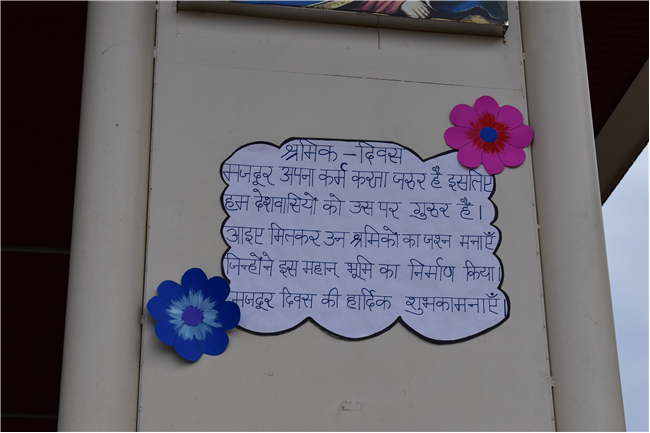 श्रमिक - दिवस
मजदूर अपना कर्म करता जरुर है इसलिए
हम देशवासियों को उस पर गुरुर है।
आइए मिलकर उन श्रमिकों का जश्न मनाएँ
जिन्होंने इस महान भूमि का निर्माण किया।
मजदूर दिवस की हार्दिक शुभकामनाएँ